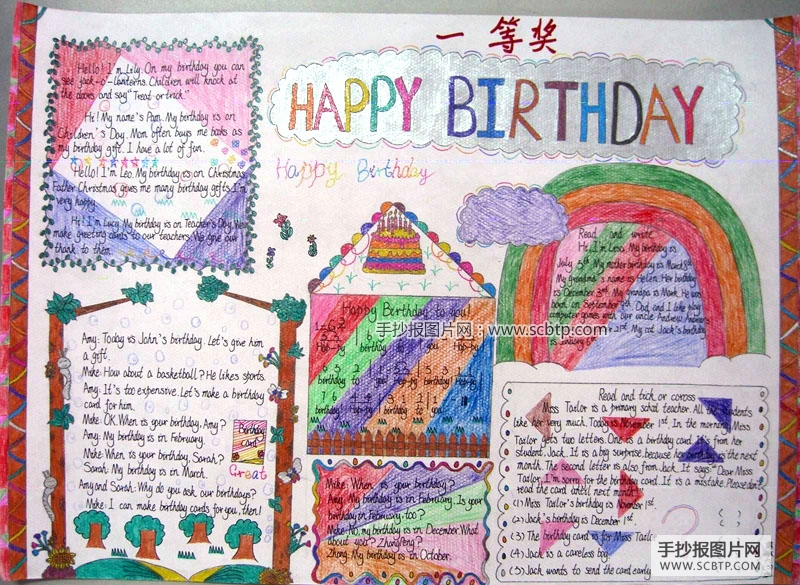 一等奖
HAPPY BIRTHDAY
Happy Birthday
Hello! I'm Lily. On my birthday you can
see jack-o-lanterns. Children will knock at
the doors and say "Treat or trick."
Hi! My name's Pam. My birthday is on
Children's Day. Mom often buys me books as
my birthday gift. I have a lot of fun.
Hello! I'm Leo. My birthday is on Christmas.
Father Christmas gives me many birthday gifts. I'm
very happy.
Hi! I'm Lucy. My birthday is on Teacher's Day. We
make greeting cards to our teachers. We give our
thank to them.
Amy: Today is John's birthday. Let's give him
a gift.
Mike: How about a basketball? He likes sports.
Amy: It's too expensive. Let's make a birthday
card for him.
Mike: OK. When is your birthday, Amy?
Amy: My birthday is in February.
Mike: When is your birthday, Sarah?
Sarah: My birthday is in March.
Amy and Sarah: Why do you ask our birthdays?
Mike: I can make birthday cards for you, then!
Birthday
card
Great
Happy Birthday to you!
手抄报图片网:www.scbtp.com
birthday to you! Hap-py birthday
birthday to you
Mike: When is your birthday?
Amy: My birthday is in February. Is your
birthday in February, too?
Mike: No, my birthday is in December. What
about you? Zhang Peng?
Zhang: My birthday is in October.
Read and write
Hi, I'm Lena. My birthday is
July 3rd. My mother birthday is March
My grandma's name is Helen. Her birthday
is December 3rd. My grandpa is Mark. He was
born on September. Dad and I like play
computer games with our uncle Andrew. Andrew's
2nd. My cat Jack's birthday
is January
Read and tick or coross
Miss Tailor is a primary schol teacher. All the students
like her very much. Today is November 1st. In the morning, Miss
Tailor gets two letters. One is a birthday card. It's from her
student, Jack. It is a big surprise, because her birthday is the next
month. The second letter is also from Jack. It says: "Dear Miss
Tailor, I'm sorry for the birthday card. It is a mistake. Please don't
read the card until next month."
(1) Miss Tailor's birthday is November 1st.
(2) Jack's birthday is December 1st. ( )
(3) The birthday card is for Miss Tailor.
(4) Jack is a careless boy.
(5) Jack wants to send the card early
手抄报图片网
WWW.SCBTP.COM